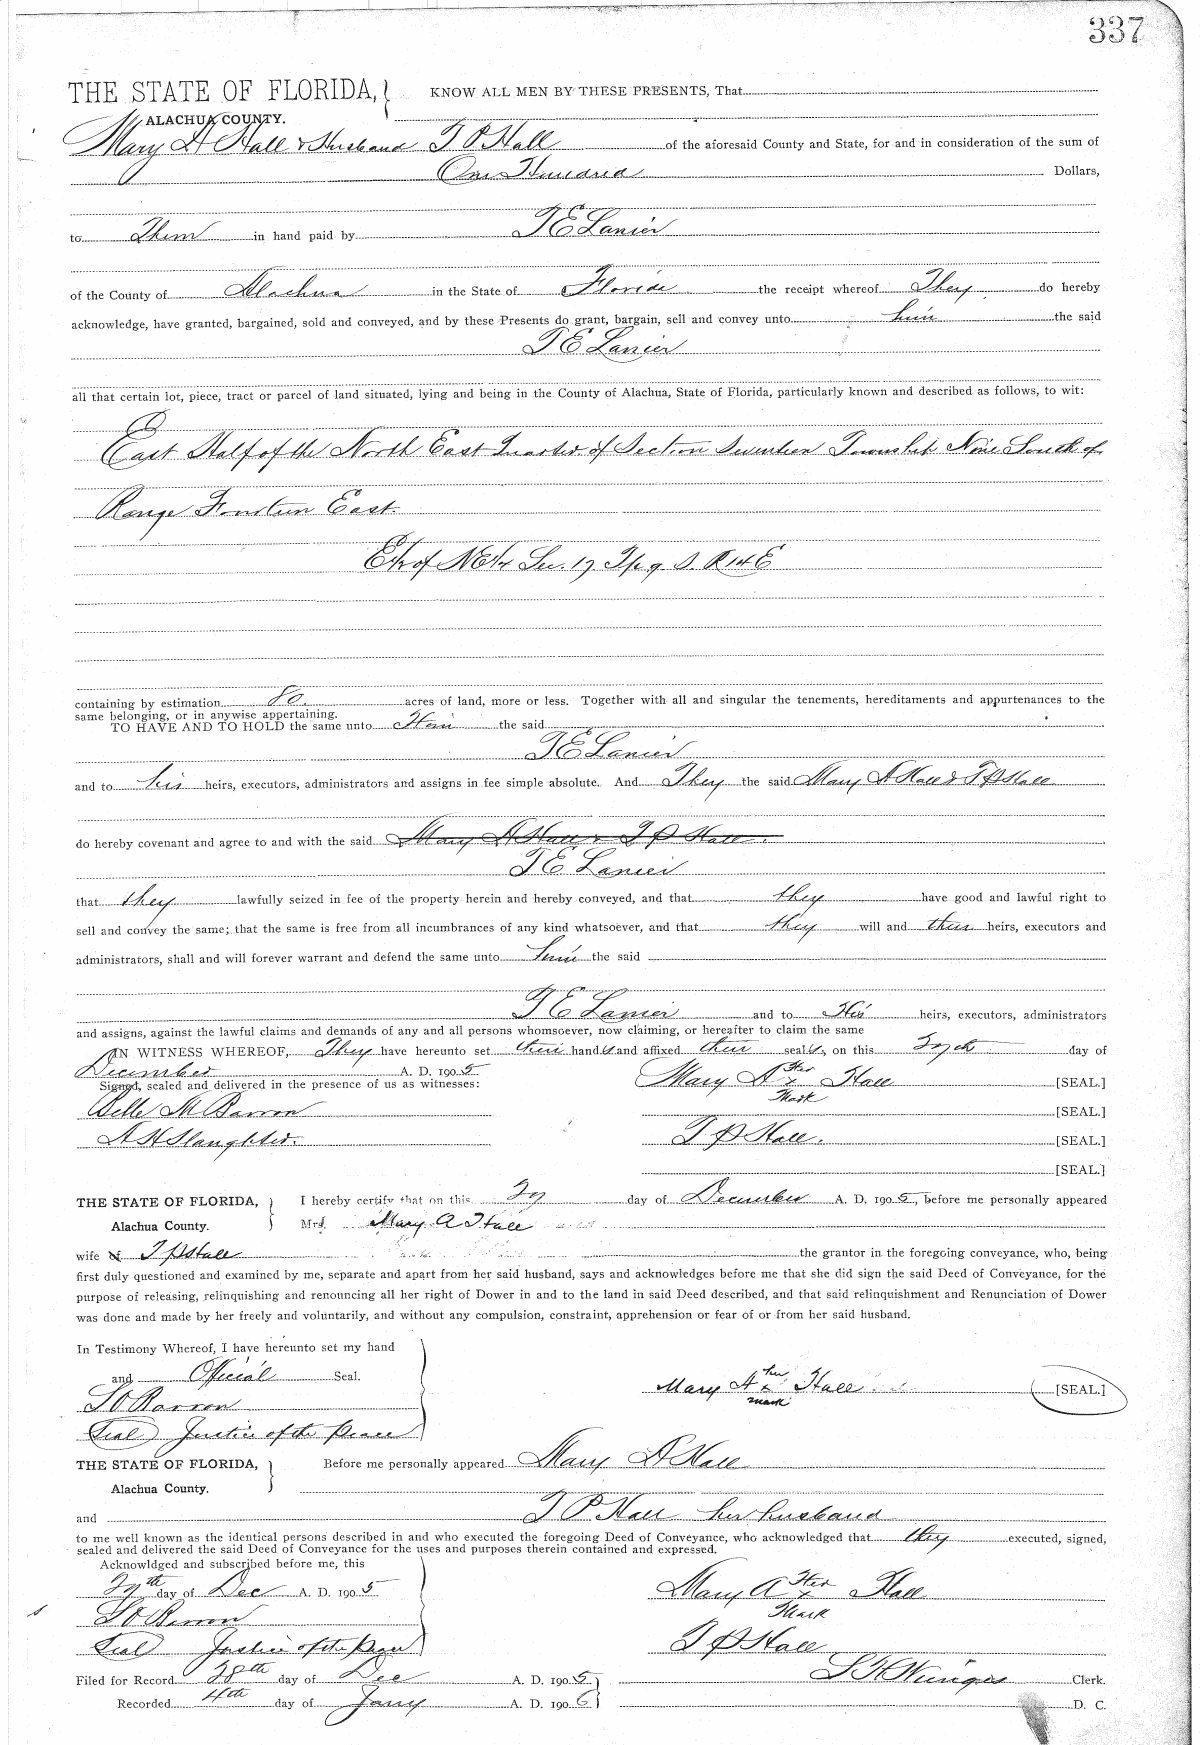 337
THE STATE OF FLORIDA, KNOW ALL MEN BY THESE PRESENTS, That
ALACHUA COUNTY.
Mary A Hall & Husband T P Hall of the aforesaid County and State, for and in consideration of the sum of
One Hundred Dollars,
to Them in hand paid by T E Lanier
of the County of Alachua in the State of Florida the receipt whereof They do hereby
acknowledge, have granted, bargained, sold and conveyed, and by these Presents do grant, bargain, sell and convey unto him the said
T E Lanier
all that certain lot, piece, tract or parcel of land situated, lying and being in the County of Alachua, State of Florida, particularly known and described as follows, to wit:
East Half of the North East Quarter of Section Seventeen Township Nine South of
Range Fourteen East
E½ of NE¼ Sec. 17 Tp. 9 S. R 14 E
containing by estimation 80. acres of land, more or less. Together with all and singular the tenements, hereditaments and appurtenances to the
same belonging, or in anywise appertaining.
TO HAVE AND TO HOLD the same unto Him the said
T E Lanier
and to his heirs, executors, administrators and assigns in fee simple absolute. And They the said Mary A Hall & T P Hall
do hereby covenant and agree to and with the said Mary A Hall & T P Hall.
T E Lanier
that they lawfully seized in fee of the property herein and hereby conveyed, and that they have good and lawful right to
sell and convey the same; that the same is free from all incumbrances of any kind whatsoever, and that they will and their heirs, executors and
administrators, shall and will forever warrant and defend the same unto him the said
T E Lanier and to His heirs, executors, administrators
and assigns, against the lawful claims and demands of any and all persons whomsoever, now claiming, or hereafter to claim the same
IN WITNESS WHEREOF, They have hereunto set their hands and affixed their seals, on this 27th day of
December A. D. 1905
Signed, sealed and delivered in the presence of us as witnesses: Mary A Her x Mark Hall [SEAL.]
Belle M Barron [SEAL.]
A H Slaughter. T P Hall. [SEAL.]
[SEAL.]
THE STATE OF FLORIDA, I hereby certify that on this 27 day of December A. D. 1905, before me personally appeared
Alachua County. Mrs. Mary A Hall
wife of T P Hall the grantor in the foregoing conveyance, who, being
first duly questioned and examined by me, separate and apart from her said husband, says and acknowledges before me that she did sign the said Deed of Conveyance, for the
purpose of releasing, relinquishing and renouncing all her right of Dower in and to the land in said Deed described, and that said relinquishment and Renunciation of Dower
was done and made by her freely and voluntarily, and without any compulsion, constraint, apprehension or fear of or from her said husband.
In Testimony Whereof, I have hereunto set my hand
and Official Seal. Mary A her x mark Hall [SEAL.]
Barron
Seal Justice of the Peace
THE STATE OF FLORIDA, Before me personally appeared Mary A Hall
Alachua County.
and T P Hall her husband
to me well known as the identical persons described in and who executed the foregoing Deed of Conveyance, who acknowledged that they executed, signed,
sealed and delivered the said Deed of Conveyance for the uses and purposes therein contained and expressed.
Acknowldged and subscribed before me, this
27th day of Dec A. D. 1905 Mary A Her x Mark Hall
Barron
Seal Justice of the Peace T P Hall
Filed for Record 28th day of Dec A. D. 1905 Clerk.
Recorded 4th day of Jany A. D. 1906 D. C.